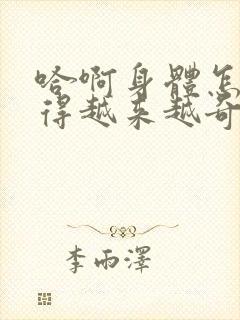 哈啊身體怎
得越来越奇
李雨澤